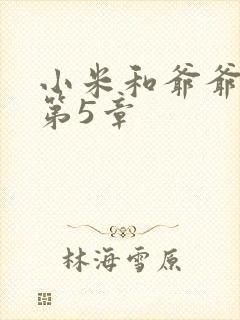 小米和爷爷
第5章
林海雪原